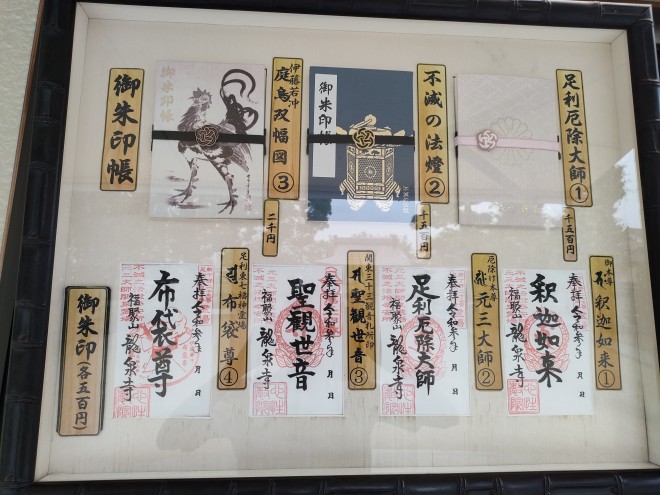 足利厄除大師①
千五百円
不滅の法燈②
千五百円
伊藤若冲
庭鳥双幅図③
二千円
御朱印帳
御朱印帳
御朱印帳
御本尊
釈迦如来①
奉拝 令和参年 月 日
釈迦如来
福聚山 龍泉寺
厄除日本尊
元三大師②
奉拝 令和参年 月 日
足利厄除大師
福聚山 龍泉寺
関東三十三観音札所印
聖観世音③
奉拝 令和参年 月 日
聖觀世音
福聚山 龍泉寺
足利東七福神霊場
布袋尊④
奉拝 令和参年 月 日
布袋尊
福聚山 龍泉寺
御朱印(各五百円)